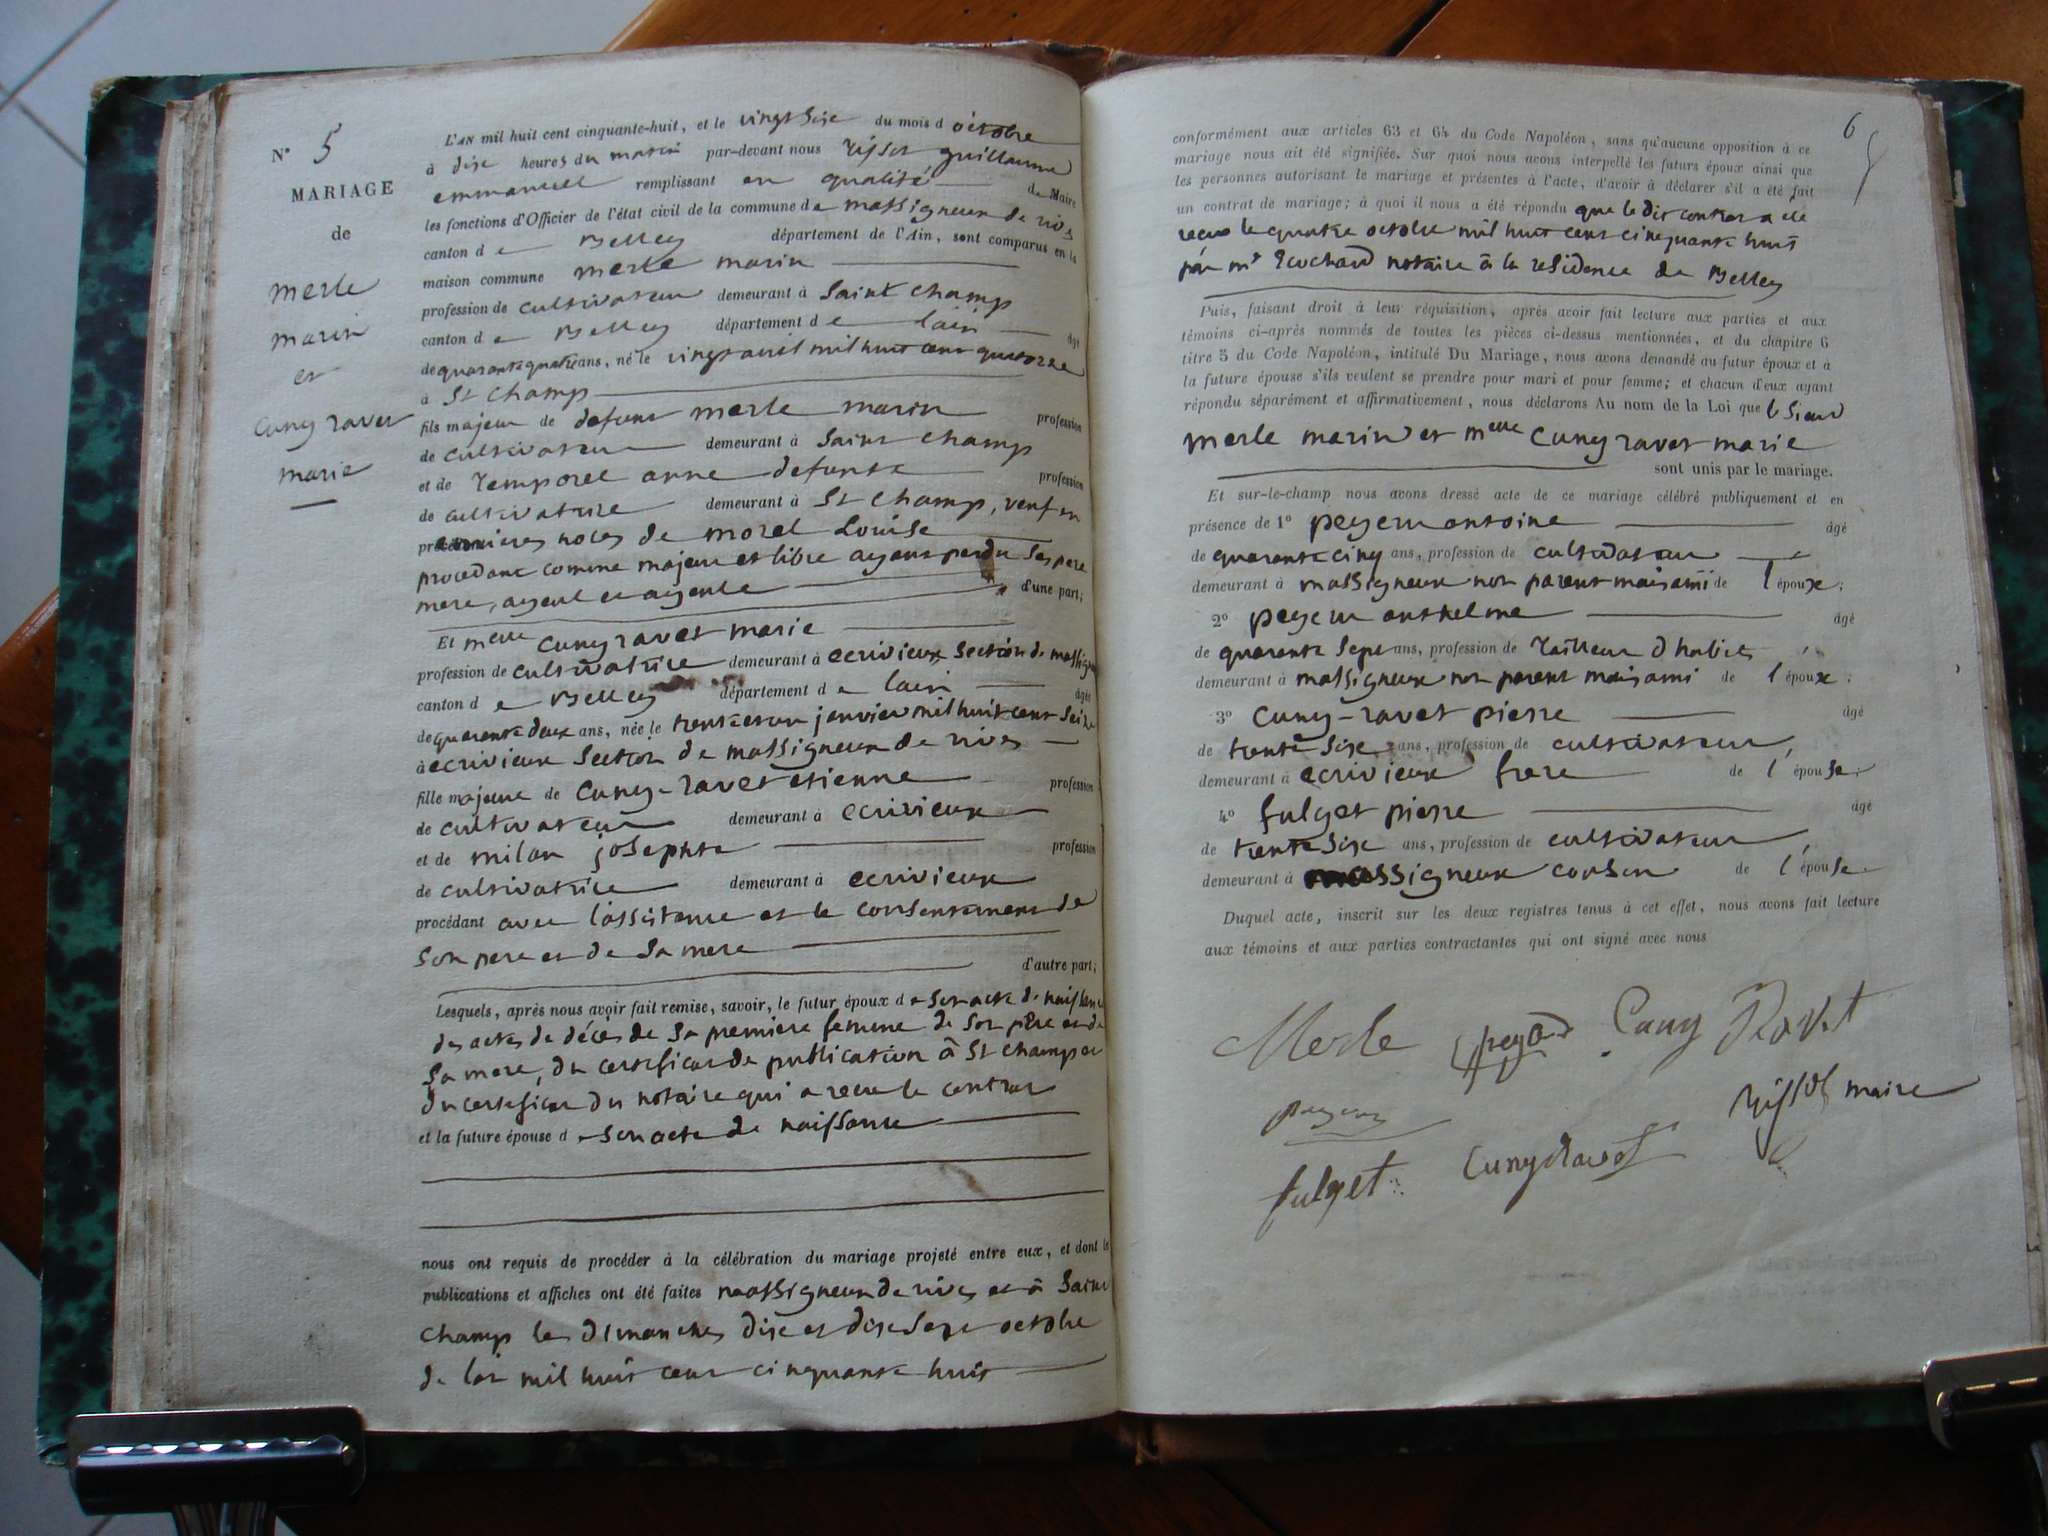 N° 5
MARIAGE
de
merle
marin
et
Cuny ravet
marie
L'AN mil huit cent cinquante-huit, et le vingt sixe du mois d octobre
à dixe heures du matin par-devant nous guillaume
emmanuel remplissant en qualité de Maire
les fonctions d'Officier de l'état civil de la commune de massigneux de rives
canton de Belley département de l'Ain, sont comparus en la
maison commune merle marin
profession de cultivateur demeurant à Saint champ
canton de Belley département de lain âgé
de quarante quatre ans, né le vingt avril mil huit cent quatorze
à St champ
fils majeur de defunt merle marin profession
de cultivateur demeurant à Saint champ
et de Temporel anne defunte profession
de cultivatrice demeurant à St champ, veuf en
premieres noces de morel Louise
procedant comme majeur et libre ayant perdu ses pere
mere, ayeul et ayeule d'une part;
Et melle Cuny ravet marie
profession de cultivatrice demeurant à ecrivieux section de massign
canton de Belley département de lain âgée
de quarante deux ans, née le trente et un janvier mil huit cent seize
à ecrivieux section de massigneux de rives
fille majeure de Cuny-ravet etienne profession
de cultivateur demeurant à ecrivieux
et de milan josephte profession
de cultivatrice demeurant à ecrivieux
procédant avec lassistance et le consentement de
son pere et de sa mere
d'autre part;
Lesquels, après nous avoir fait remise, savoir, le futur époux de son acte de naissance
des actes de déces de sa premiere femme de son père et de
sa mere, du certificat de publication à St champ et
du certificat du notaire qui a recu le contrat
et la future épouse de son acte de naissance
nous ont requis de procéder à la célébration du mariage projeté entre eux, et dont les
publications et affiches ont été faites massigneux de rives et à Saint
champ les dimanches dixe et dixe sept octobre
de lan mil huit cent cinquante huit
6
conformément aux articles 63 et 64 du Code Napoléon, sans qu'aucune opposition à ce
mariage nous ait été signifiée. Sur quoi nous avons interpellé les futurs époux ainsi que
les personnes autorisant le mariage et présentes à l'acte, d'avoir à déclarer s'il a été fait
un contrat de mariage; à quoi il nous a été répondu que le dit contrat a été
recu le quatre octobre mil huit cent cinquante huit
par me notaire à la residence de Belley
Puis, faisant droit à leur réquisition, après avoir fait lecture aux parties et aux
témoins ci-après nommés de toutes les pièces ci-dessus mentionnées, et du chapitre 6
titre 5 du Code Napoléon, intitulé Du Mariage, nous avons demandé au futur époux et à
la future épouse s'ils veulent se prendre pour mari et pour femme; et chacun d'eux ayant
répondu séparément et affirmativement, nous déclarons Au nom de la Loi que le Sieur
merle marin et melle Cuny ravet marie
sont unis par le mariage.
Et sur-le-champ nous avons dressé acte de ce mariage célébré publiquement et en
présence de 1° peyern antoine âgé
de quarante cinq ans, profession de cultivateur
demeurant à massigneux non parent mais ami de l époux;
2° peyern anthelme âgé
de quarante sept ans, profession de Tailleur d habits
demeurant à massigneux non parent mais ami de l époux;
3° Cuny-ravet pierre âgé
de trente sixe ans, profession de cultivateur,
demeurant à ecrivieux frere de l' épouse;
4° fulget pierre âgé
de trente sixe ans, profession de cultivateur,
demeurant à massigneux cousin de l' épouse
Duquel acte, inscrit sur les deux registres tenus à cet effet, nous avons fait lecture
aux témoins et aux parties contractantes qui ont signé avec nous
Merle Cuny Ravet
maire
fulget Cuny Ravet